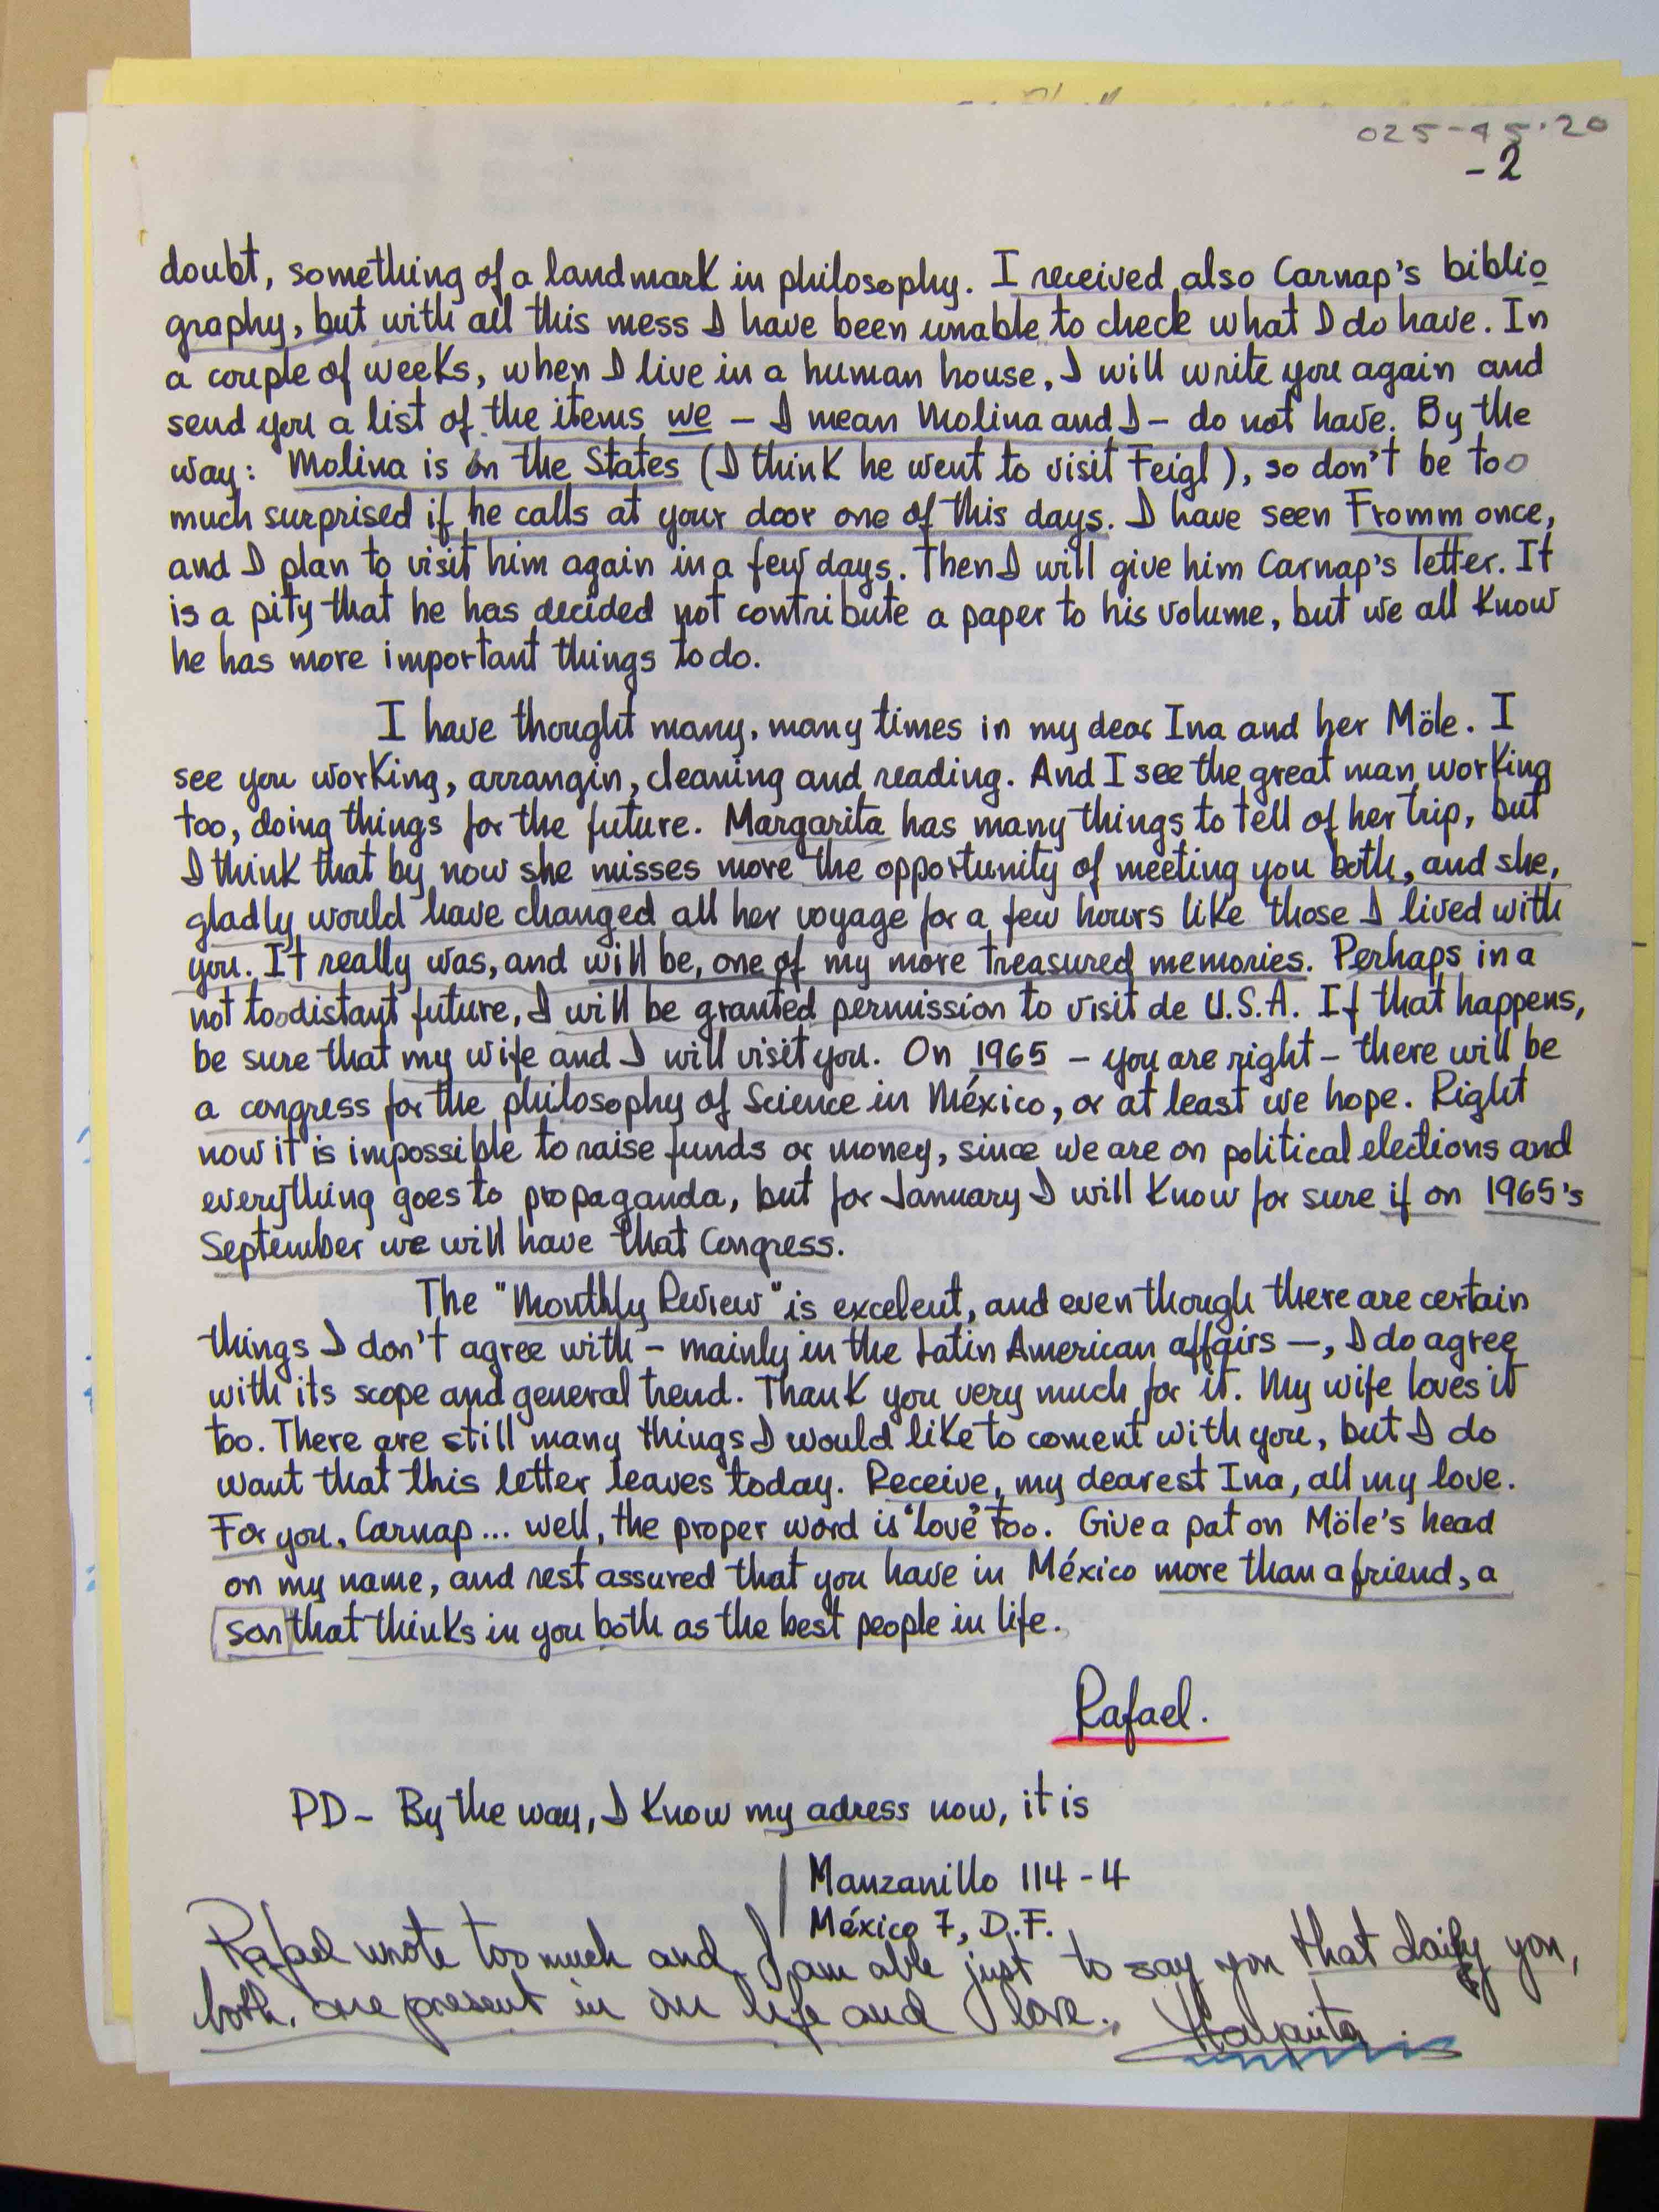 025-95-20
-2
doubt, something of a landmark in philosophy. I received also Carnap's biblio
graphy, but with all this mess I have been unable to check what I do have. In
a couple of weeks, when I live in a human house, I will write you again and
send you a list of the items we – I mean Molina and I – do not have. By the
way: Molina is on the States (I think he went to visit Feigl), so don't be too
much surprised if he calls at your door one of this days. I have seen Fromm once,
and I plan to visit him again in a few days. Then I will give him Carnap's letter. It
is a pity that he has decided not contribute a paper to his volume, but we all know
he has more important things to do.
I have thought many, many times in my dear Ina and her Möle. I
see you working, arrangin, cleaning and reading. And I see the great man working
too, doing things for the future. Margarita has many things to tell of her trip, but
I think that by now she misses more the opportunity of meeting you both, and she,
gladly would have changed all her voyage for a few hours like those I lived with
you. It really was, and will be, one of my more treasured memories. Perhaps in a
not too distant future, I will be granted permission to visit de U.S.A. If that happens,
be sure that my wife and I will visit you. On 1965 – you are right – there will be
a congress for the philosophy of Science in México, or at least we hope. Right
now it is impossible to raise funds or money, since we are on political elections and
everything goes to propaganda, but for January I will know for sure if on 1965's
September we will have that Congress.
The "Monthly Review" is excelent, and even though there are certain
things I don't agree with – mainly in the Latin American affairs –, I do agree
with its scope and general trend. Thank you very much for it. My wife loves it
too. There are still many things I would like to coment with you, but I do
want that this letter leaves today. Receive, my dearest Ina, all my love.
For you, Carnap... well, the proper word is "love" too. Give a pat on Möle's head
on my name, and rest assured that you have in México more than a friend, a
son that thinks in you both as the best people in life.
Rafael.
PD – By the way, I know my adress now, it is
Manzanillo 114-4
México 7, D.F.
Rafael wrote too much and I am able just to say you that daily you,
both, are present in our life and love.
Margarita.